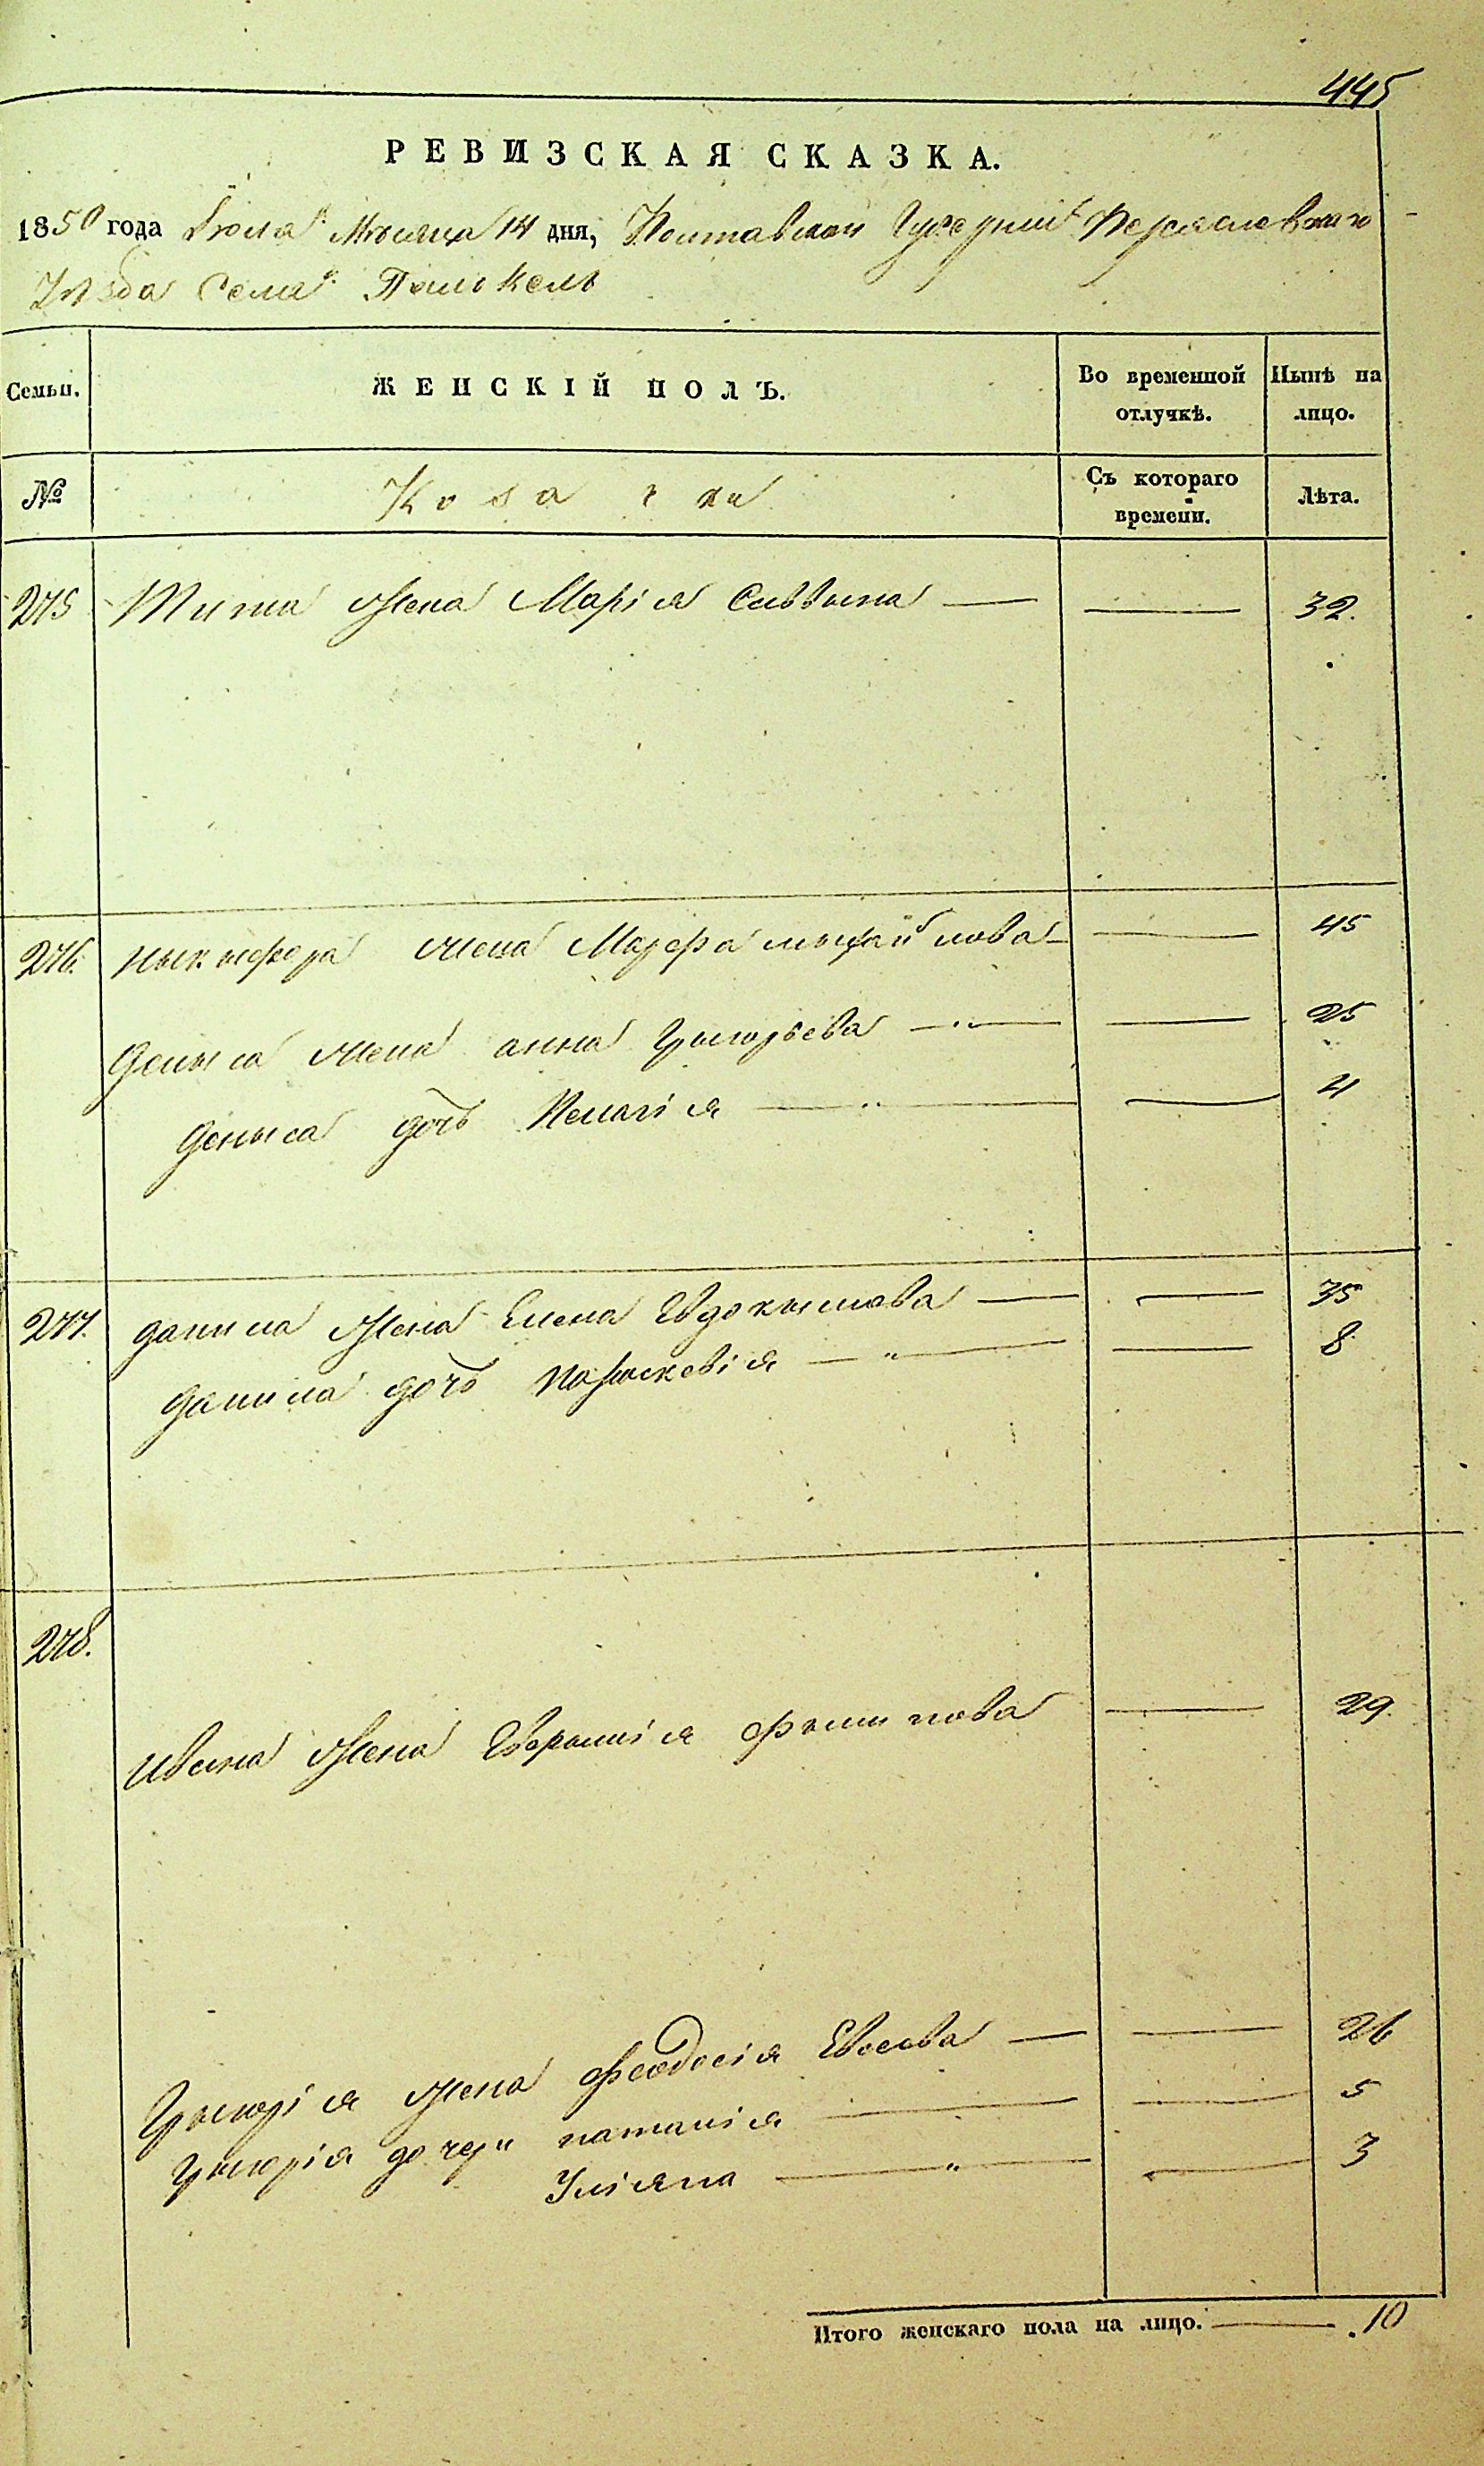 445
РЕВИЗСКАЯ СКАЗКА.
1850 года Іюля Мѣсяца 14 дня, Полтавской Губерніи Переяславскаго
Уѣзда Села
Семьи. ЖЕНСКІЙ ПОЛЪ. Во временной отлучкѣ. Нынѣ на лицо.
№ Козачки Съ котораго времени. Лѣта.
275 Тита Жена Марія Саввына — — 32.
276. Ныкифора жена Марфа Мыхайлова — — 45
Деныса жена анна Грыгорьева — " — — 25
Деныса дочь Пелагія — " — — 4
277. Данила Жена Елена Евдокымова — — 35
Данила дочь Параскевія — " — — 8
278.
Ивана Жена Ефросинія Филипова — 29.
Грыгорія Жена Феодосія — — 26
Грыгорія дочери наталія — — 5
Уліяна — " — — 3
Итого женскаго пола на лицо. — 10